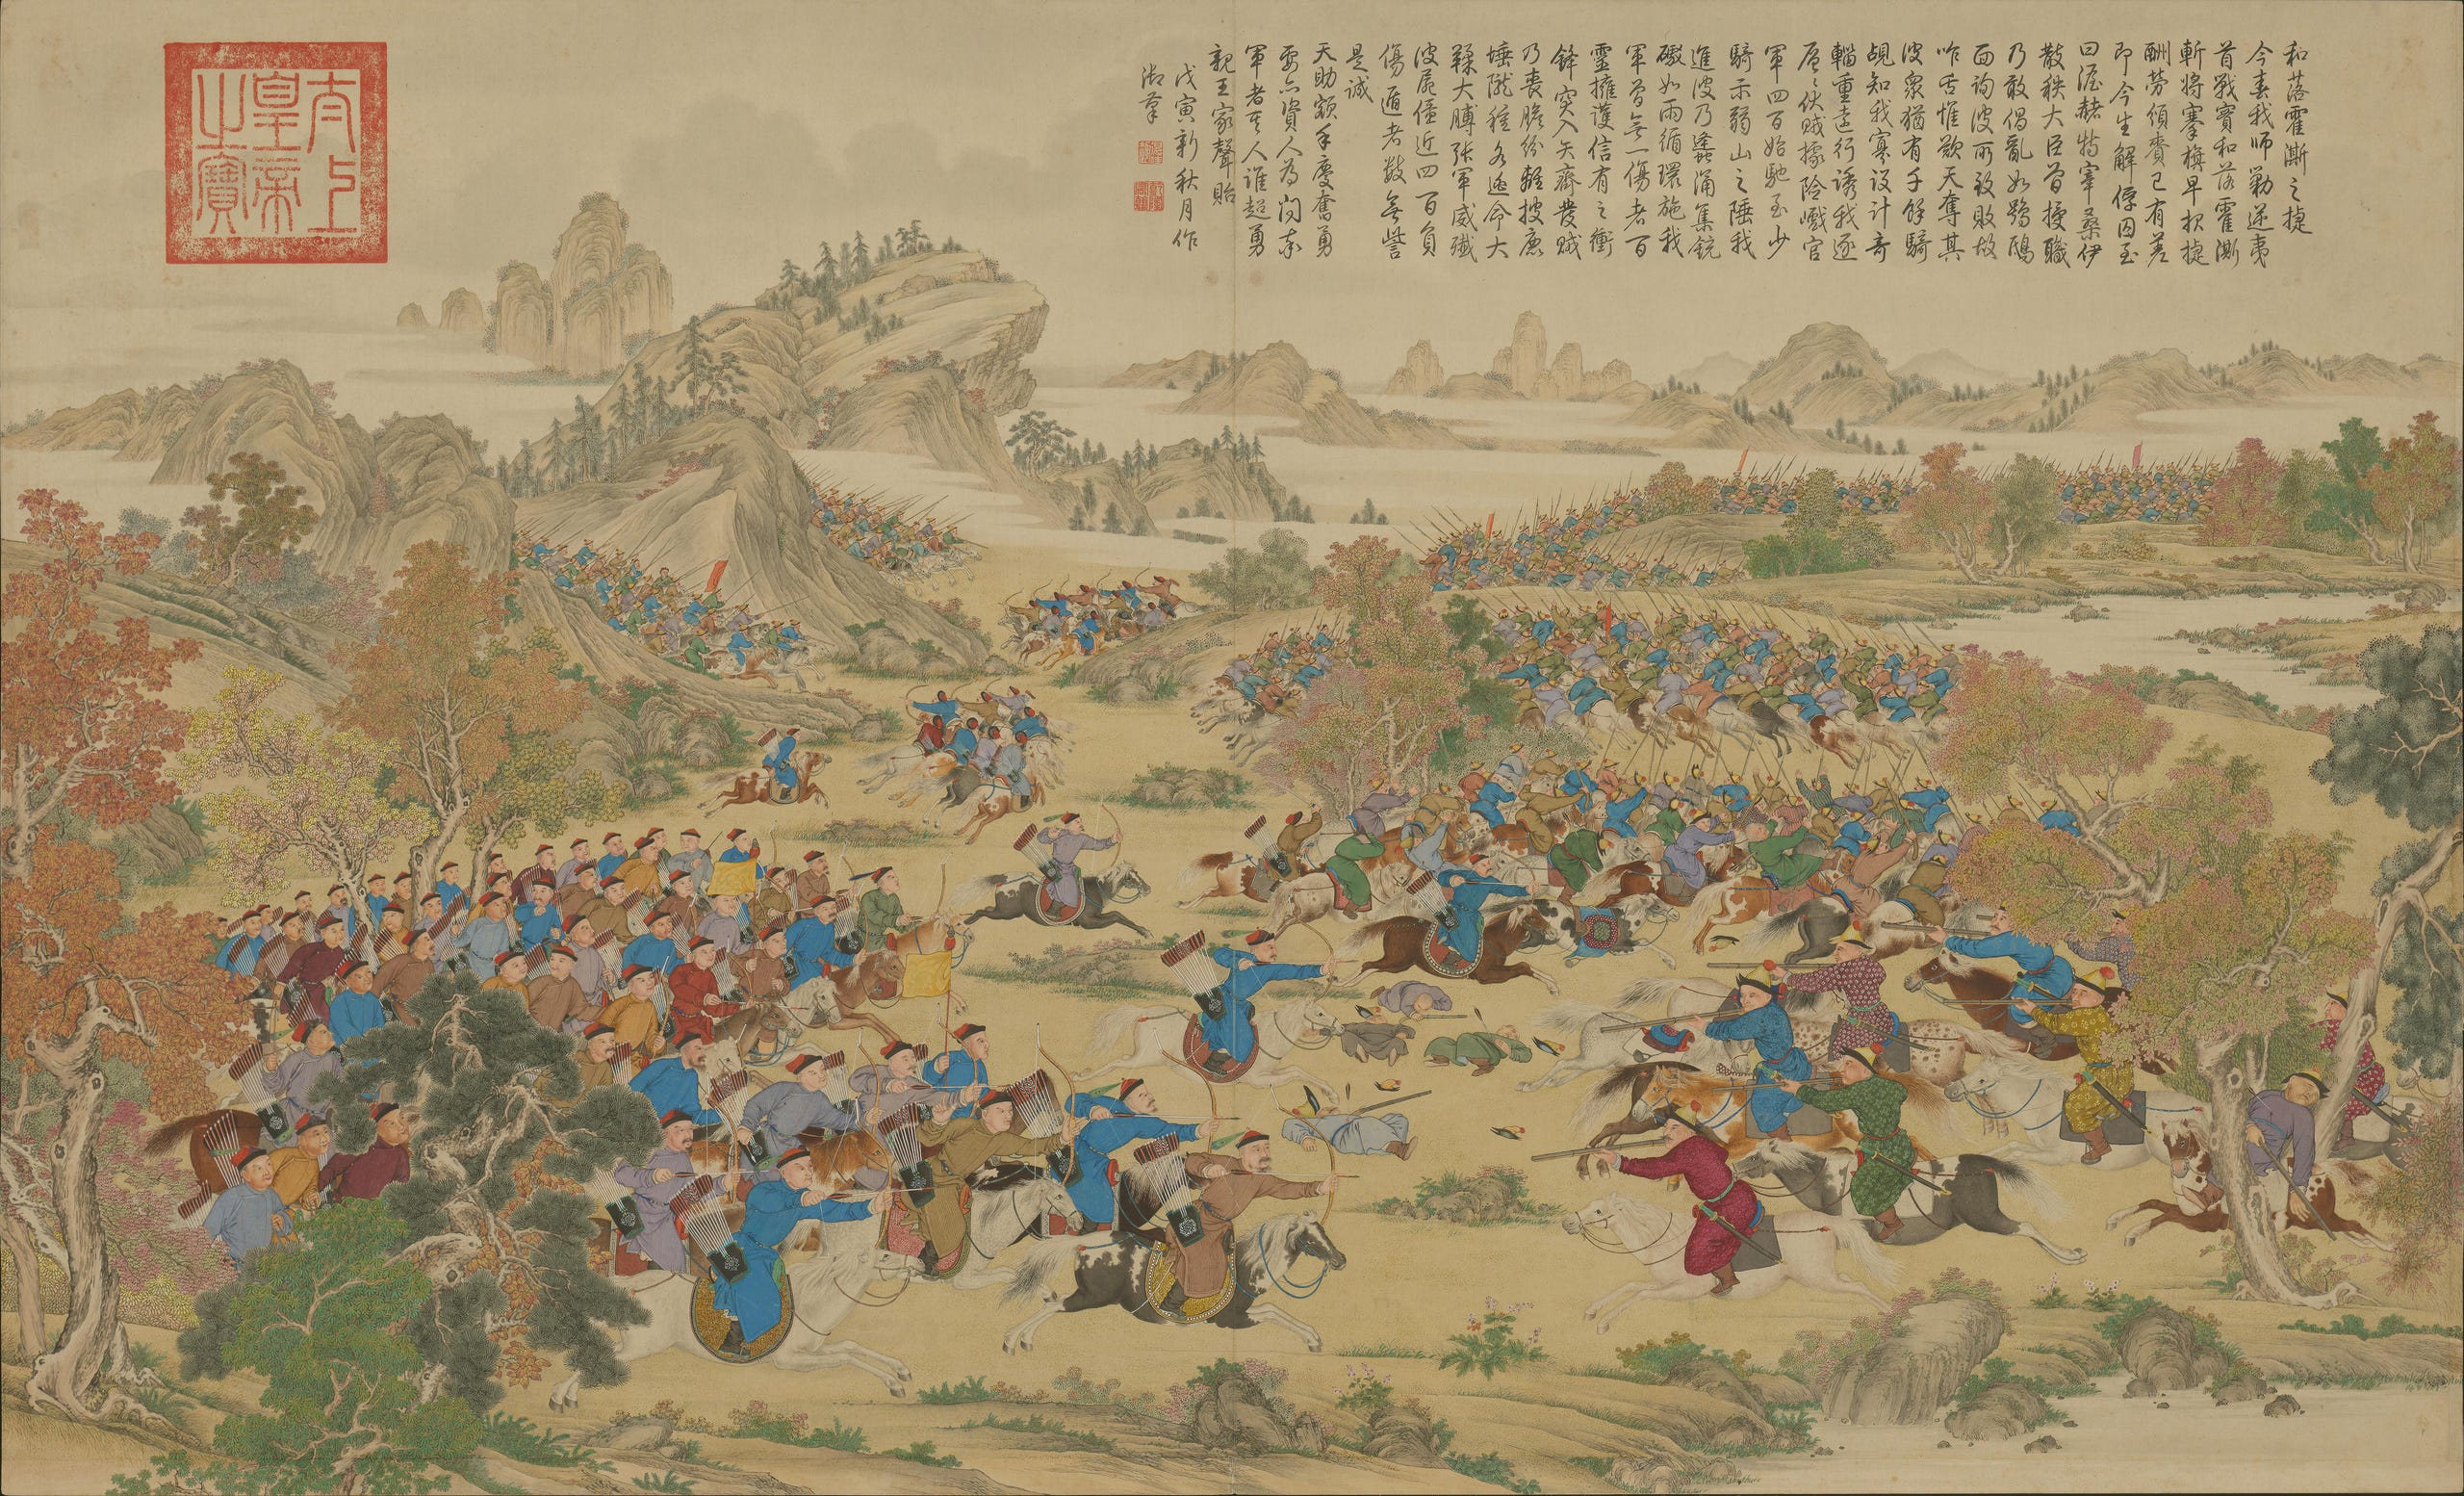 和落霍澌之捷
今春我師勦逆夷
首戰實和落霍澌
斬將搴旗早報捷
酬勞頒賚已有差
即今生解俘囚至
曰渥赫特宰桑伊
散秩大臣曾授職
乃敢倡亂如鴞鴟
面詢彼所致敗故
咋舌惟歎天奪其
彼衆猶有千餘騎
覘知我寡設計奇
輜重遠行誘我逐
層〻伏賊據險巇官
軍四百始馳至少
騎示弱山之陲我
進彼乃蠭涌集銃
礮如雨循環施我
軍曾無一傷者百
靈擁護信有之衝
鋒突入矢齊發賊
乃喪膽紛離披鹿
埵隴種各逃命大
鞣大膊張軍威殲
彼屍僵近四百負
傷遁者數無訾
是誠
天助額手慶奮勇
要亦資人為問本
軍者其人誰超勇
親王家聲貽
戊寅新秋月作
御筆
太上皇帝之寶